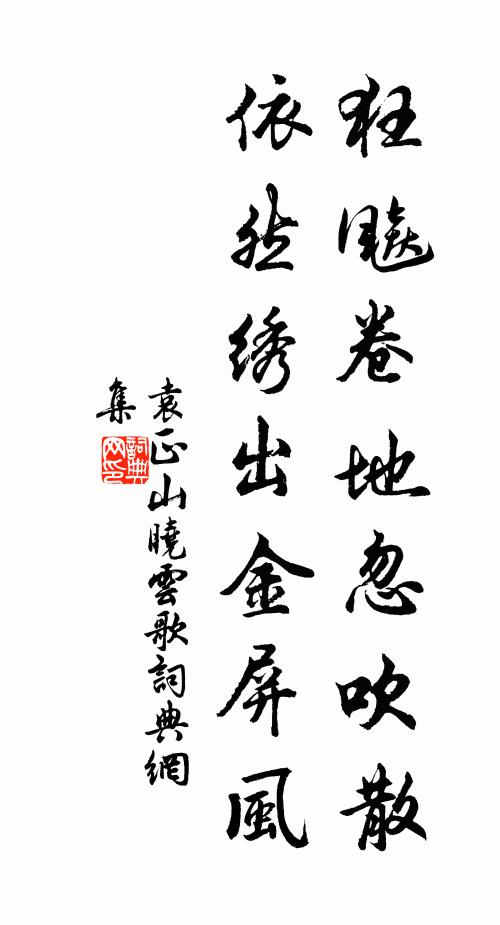 狂飈卷地忽吹散
依然绣出金屏風
袁正山曉雲歌詞典網
集
詞典
网印